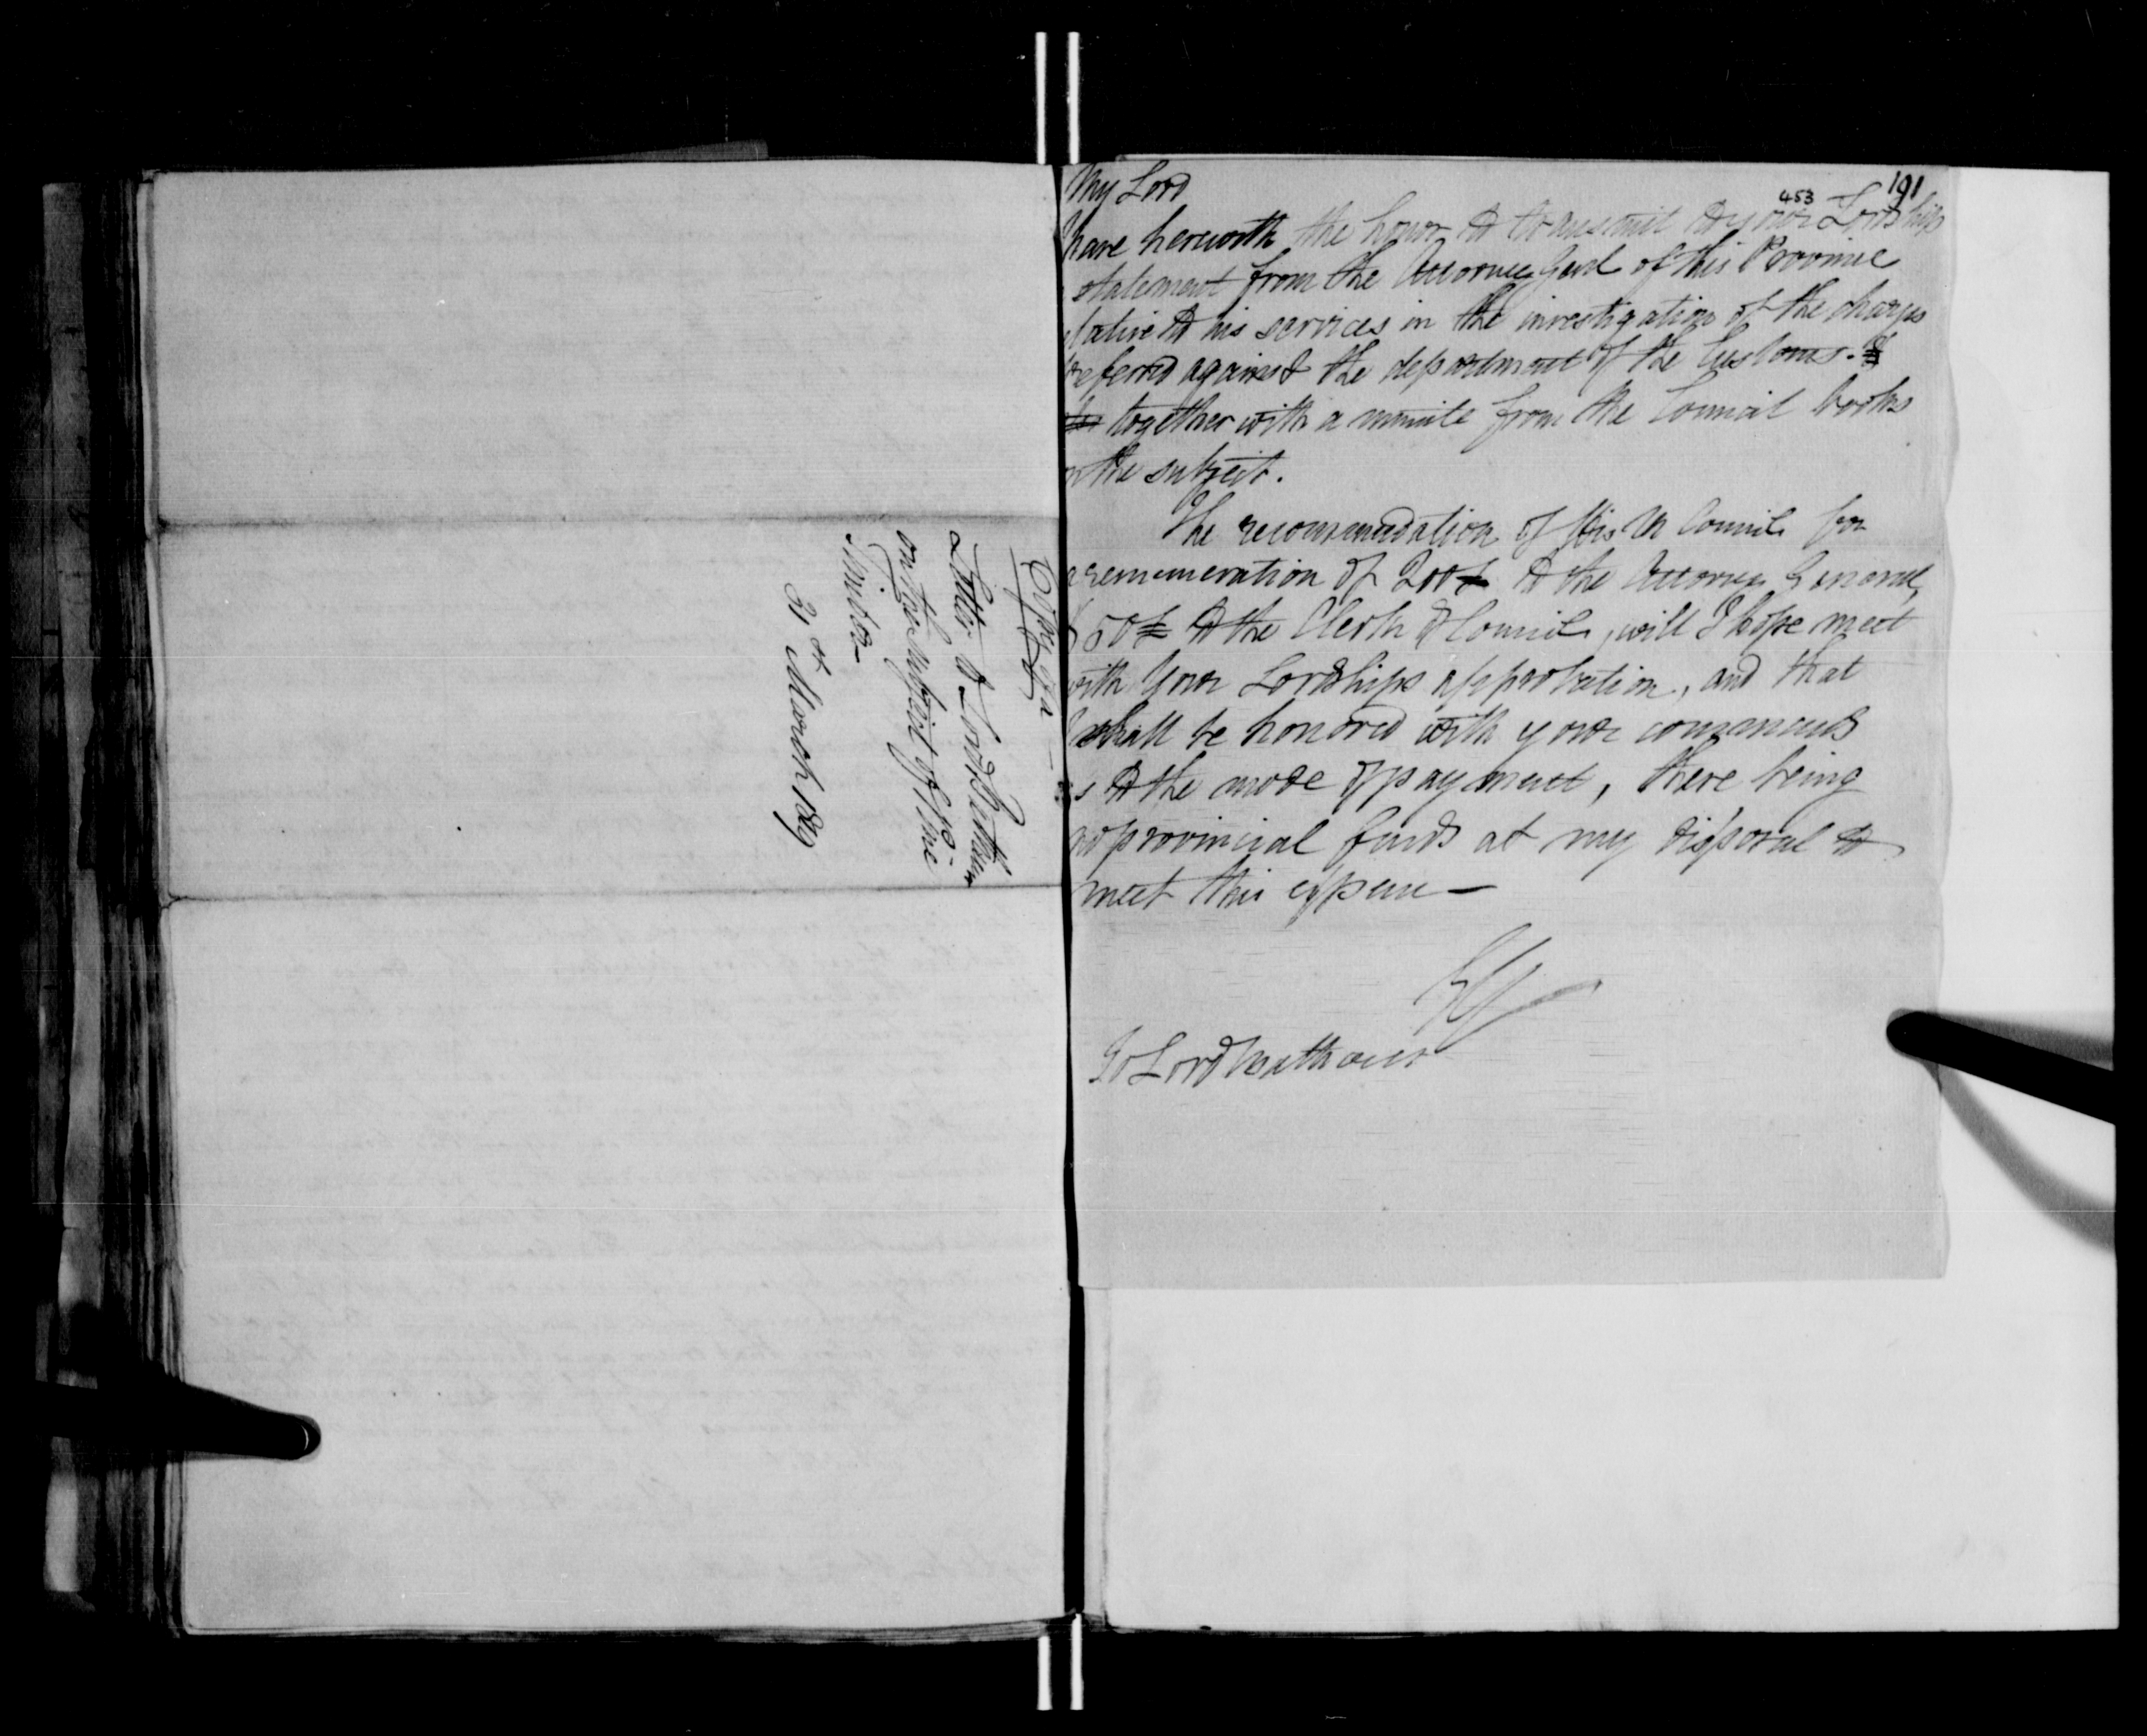 Copy of a
Letter to Lord Bathurst
on the subject of Pine
Timber —
31st March 1819
453 191
My Lord
have herewith the honor to transmit to your Lordship
statement from the Attorney Genl of this Province
lative to his services in the investigation of the charges
referred against the department of the Customs.
together with a minute from the Council books
n the subject.
The recommendation of His M Council for
a remuneration of 200£ to the Attorney General,
50£ to the Clerk of Council, will I hope meet
with Your Lordships approbation, and that
I shall be honored with your commands
as to the mode of payment, there being
no provincial funds at my disposal to
meet this expense —
To Lord Bathurst